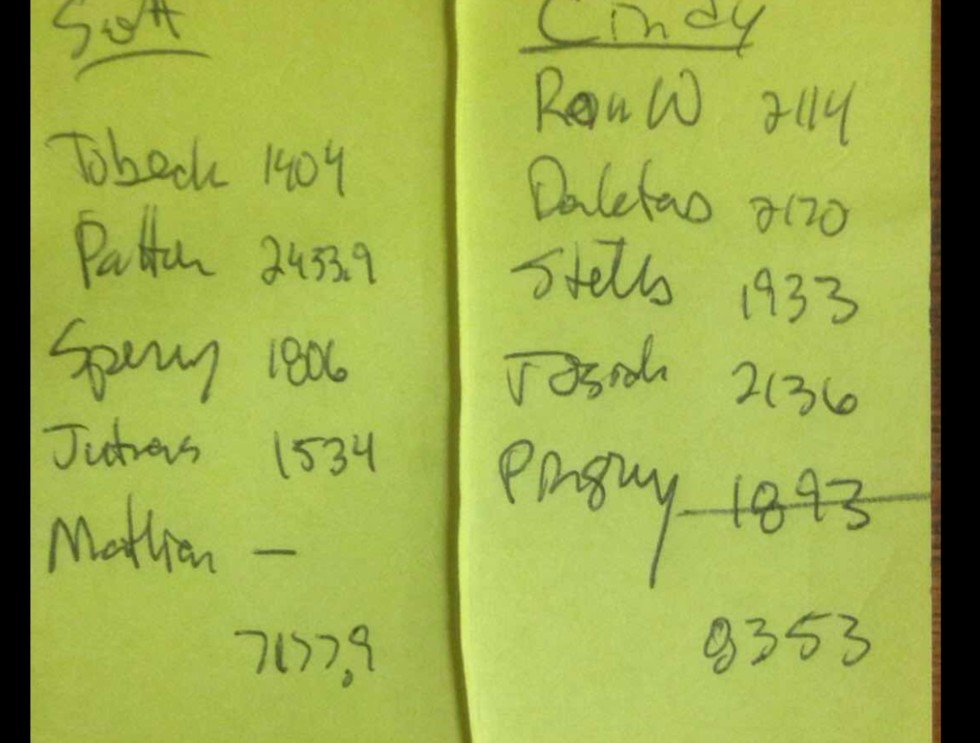 Scott
Tobeck 1404
Patten 2433.9
Sperry 1806
Jutras 1534
—
7177.9
Cindy
Ron W 2114
2170
1933
2136
1893
8353